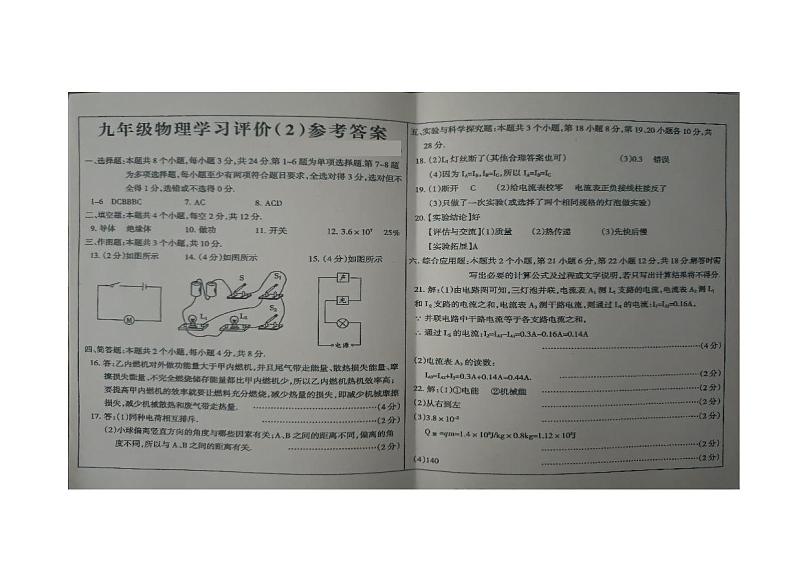 九年级物理学习评价(2)参考答案
一、选择题:本题共8个小题,每小题3分,共24分.第1~6题为单项选择题.第7~8题
为多项选择题,每小题至少有两项符合题目要求、全选对得3分,选对但不
全得1分,选错或不选得0分.
1-6 DCBBBC 7. AC 8. ACD
二、填空题:本题共4个小题,每空2分,共12分.
9. 导体 绝缘体 10. 做功 11. 开关 12. 3.6×10⁷ 25%
三、作图题:本题共3个小题,共10分.
13. (2分)如图所示 14. (4分)如图所示 15. (4分)如图所示
M
S S₁ L₁ L₂ S₂
声
光
电源
四、简答题:本题共2个小题,每小题4分,共8分.
16. 答:乙内燃机对外做功能量大于甲内燃机,并且尾气带走能量、散热损失能量、摩
擦损失能量、不完全燃烧储存能量都比甲内燃机少,所以乙内燃机热机效率高;
要提高甲内燃机的效率就要让燃料充分燃烧,减少热量的损失,即减少机械摩擦
损失,减少机械散热和废气带走热量. (4分)
17. 答:(1)同种电荷相互排斥. (2分)
(2)小球偏离竖直方向的角度与哪些因素有关;A、B之间的距离不同,偏离的角
度不同,所以与A、B之间的距离有关. (2分)
五、实验与科学探究题:本题共3个小题,第18小题8分,第19、20小题各10分,共
28分.
18. (2)L₁灯丝断了(其他合理答案也可) (3)0.3 错误
(4)因为I_A=I_B,I_B=I_C,所以I_A=I_B=I_C
19. (1)断开 C (2)给电流表校零 电流表正负接线柱接反了
(3)只做了一次实验(或选择了两个相同规格的灯泡做实验)
20. 【实验结论】好
【评估与交流】(1)质量 (2)热传递 (3)先快后慢
【实验拓展】A
六、综合应用题:本题共2个小题,第21小题6分,第22小题12分,共18分.解答时需
写出必要的计算公式及过程或文字说明,若只写出计算结果将不得分.
21. 解:(1)由电路图可知,三灯泡并联,电流表A₁测L₂支路的电流,电流表A₂测L₁
∵并联电路中干路电流等于各支路电流之和.
(4分)
(2)电流表A₃的读数:
(2分)
22. 解:(1)①电能 ②机械能 (2分)
(2)从右到左 (2分)
(3)3.8×10⁻² (2分)
(2分)
(4)140